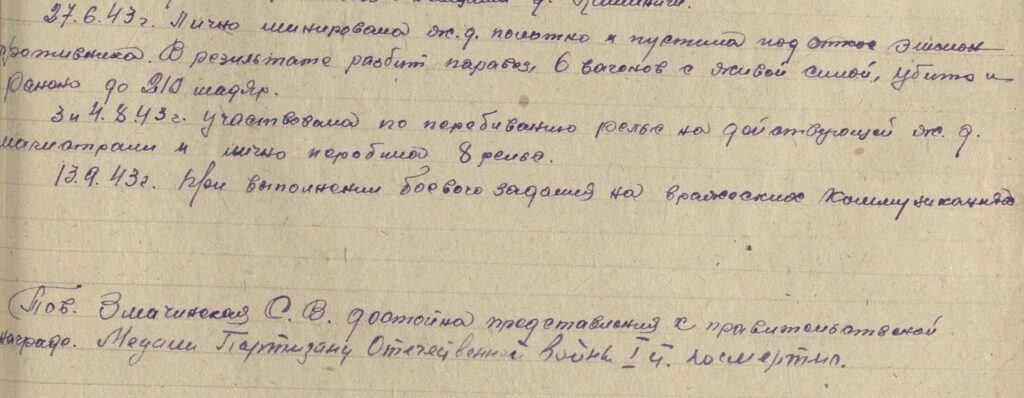 27.6.43г. Лично минировала ж.д. полотно и пустила под откос эшелон
противника. В результате разбит паравоз, 6 вагонов с живой силой, убито и
ранено до 210 мадяр.
3 и 4.8.43г. участвовала по перебиванию рельс на действующей ж.д.
магистрали и лично перебила 8 рельс.
13.9.43г. При выполнении боевого задания на вражеских коммуникациях
Тов. Змачинская С.В. достойна представления к правительственой
награде. Медали Партизану Отечественной войны I ст. посмертно.